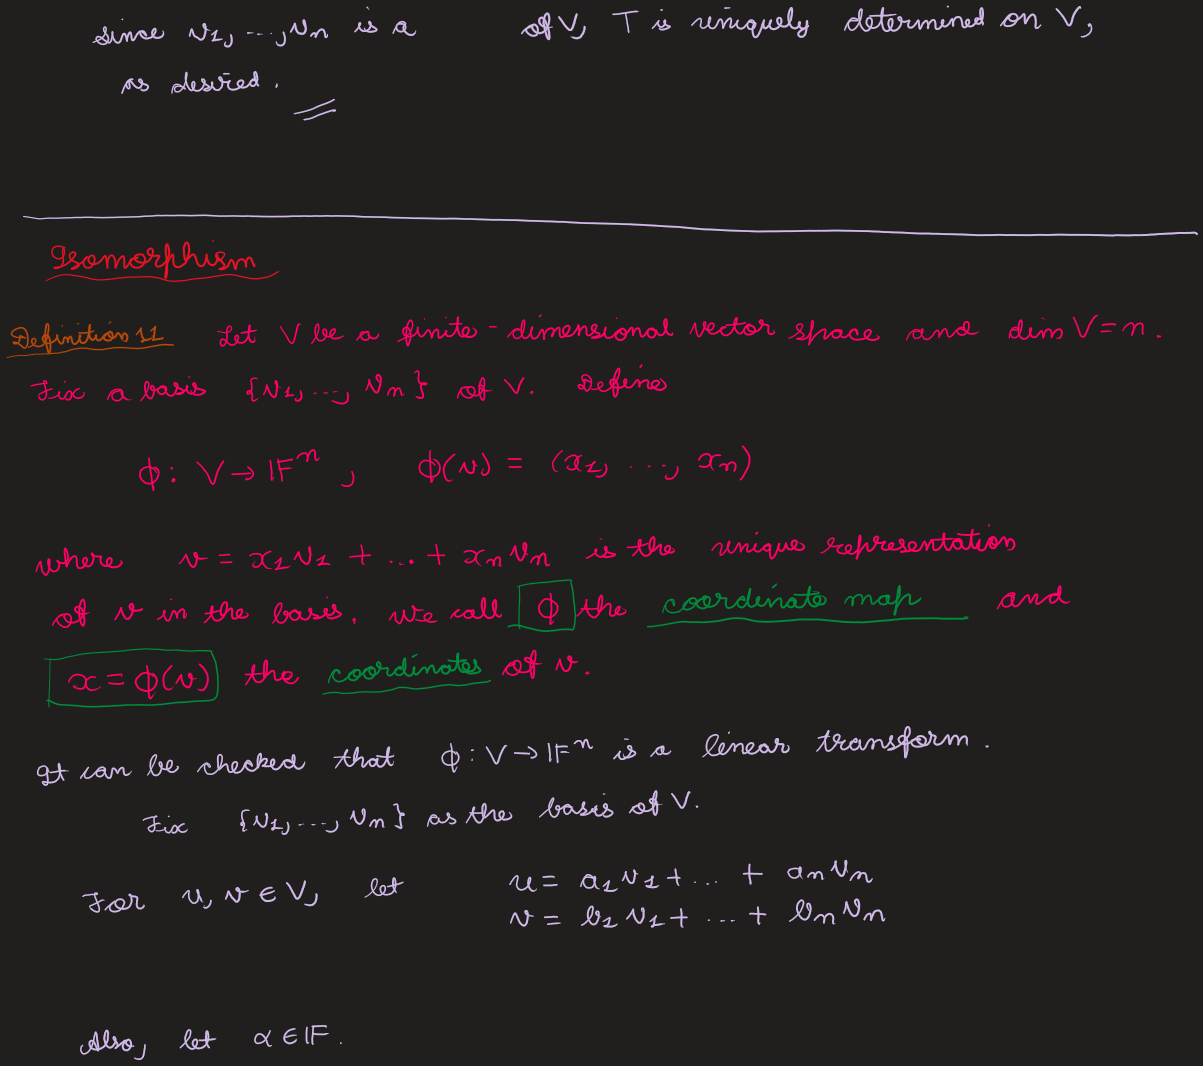 since v₁, ..., vₙ is a of V, T is uniquely determined on V,
as desired.
Isomorphism
Definition 11 Let V be a finite-dimensional vector space and dim V = n.
Fix a basis {v₁, ..., vₙ} of V. Define
ϕ: V → 𝔽ⁿ, ϕ(v) = (x₁, ..., xₙ)
where v = x₁v₁ + ... + xₙvₙ is the unique representation
of v in the basis. We call ϕ the coordinate map and
x = ϕ(v) the coordinates of v.
It can be checked that ϕ: V → 𝔽ⁿ is a linear transform.
Fix {v₁, ..., vₙ} as the basis of V.
For u, v ∈ V, let u = a₁v₁ + ... + aₙvₙ
v = b₁v₁ + ... + bₙvₙ
Also, let α ∈ 𝔽.